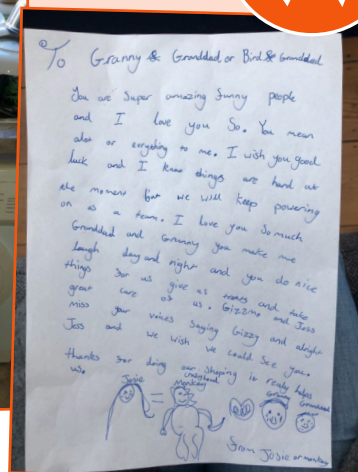 To Granny & Granddad or Bird & Granddad
You are super amazing funny people
and I love you so. You mean
alot or evrything to me. I wish you good
luck and I know things are hard at
the moment but we will keep powering
on as a team. I love you so much
Granddad and Granny you make me
laugh day and night and you do nice
things for us give us treats and take
great care of us. Gizzmo and Jess
miss your voices saying Gizzy and alright
Jess and we wish we could see you.
thanks for doing our shoping it realy helps
us.
Josie = Monkey
Granny Granddad
from Josie or monkey